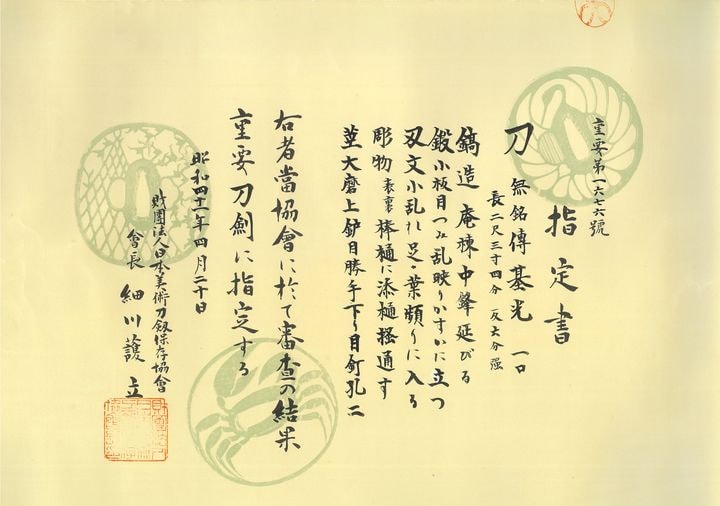 重要第一六七六號
指定書
刀 無銘傳基光 一口
長二尺三寸四分 反六分强
鎬造 庵棟 中鋒延びる
鍛 小板目つみ 乱映りかすかに立つ
刃文 小乱れ 足・葉頻りに入る
彫物 表裏棒樋に添樋掻通す
茎 大磨上 鑢目勝手下り 目釘孔二
右者當協會に於て審査の結果
重要刀剣に指定する
昭和四十二年四月二十日
財團法人日本美術刀剣保存協會
會長 細川護立